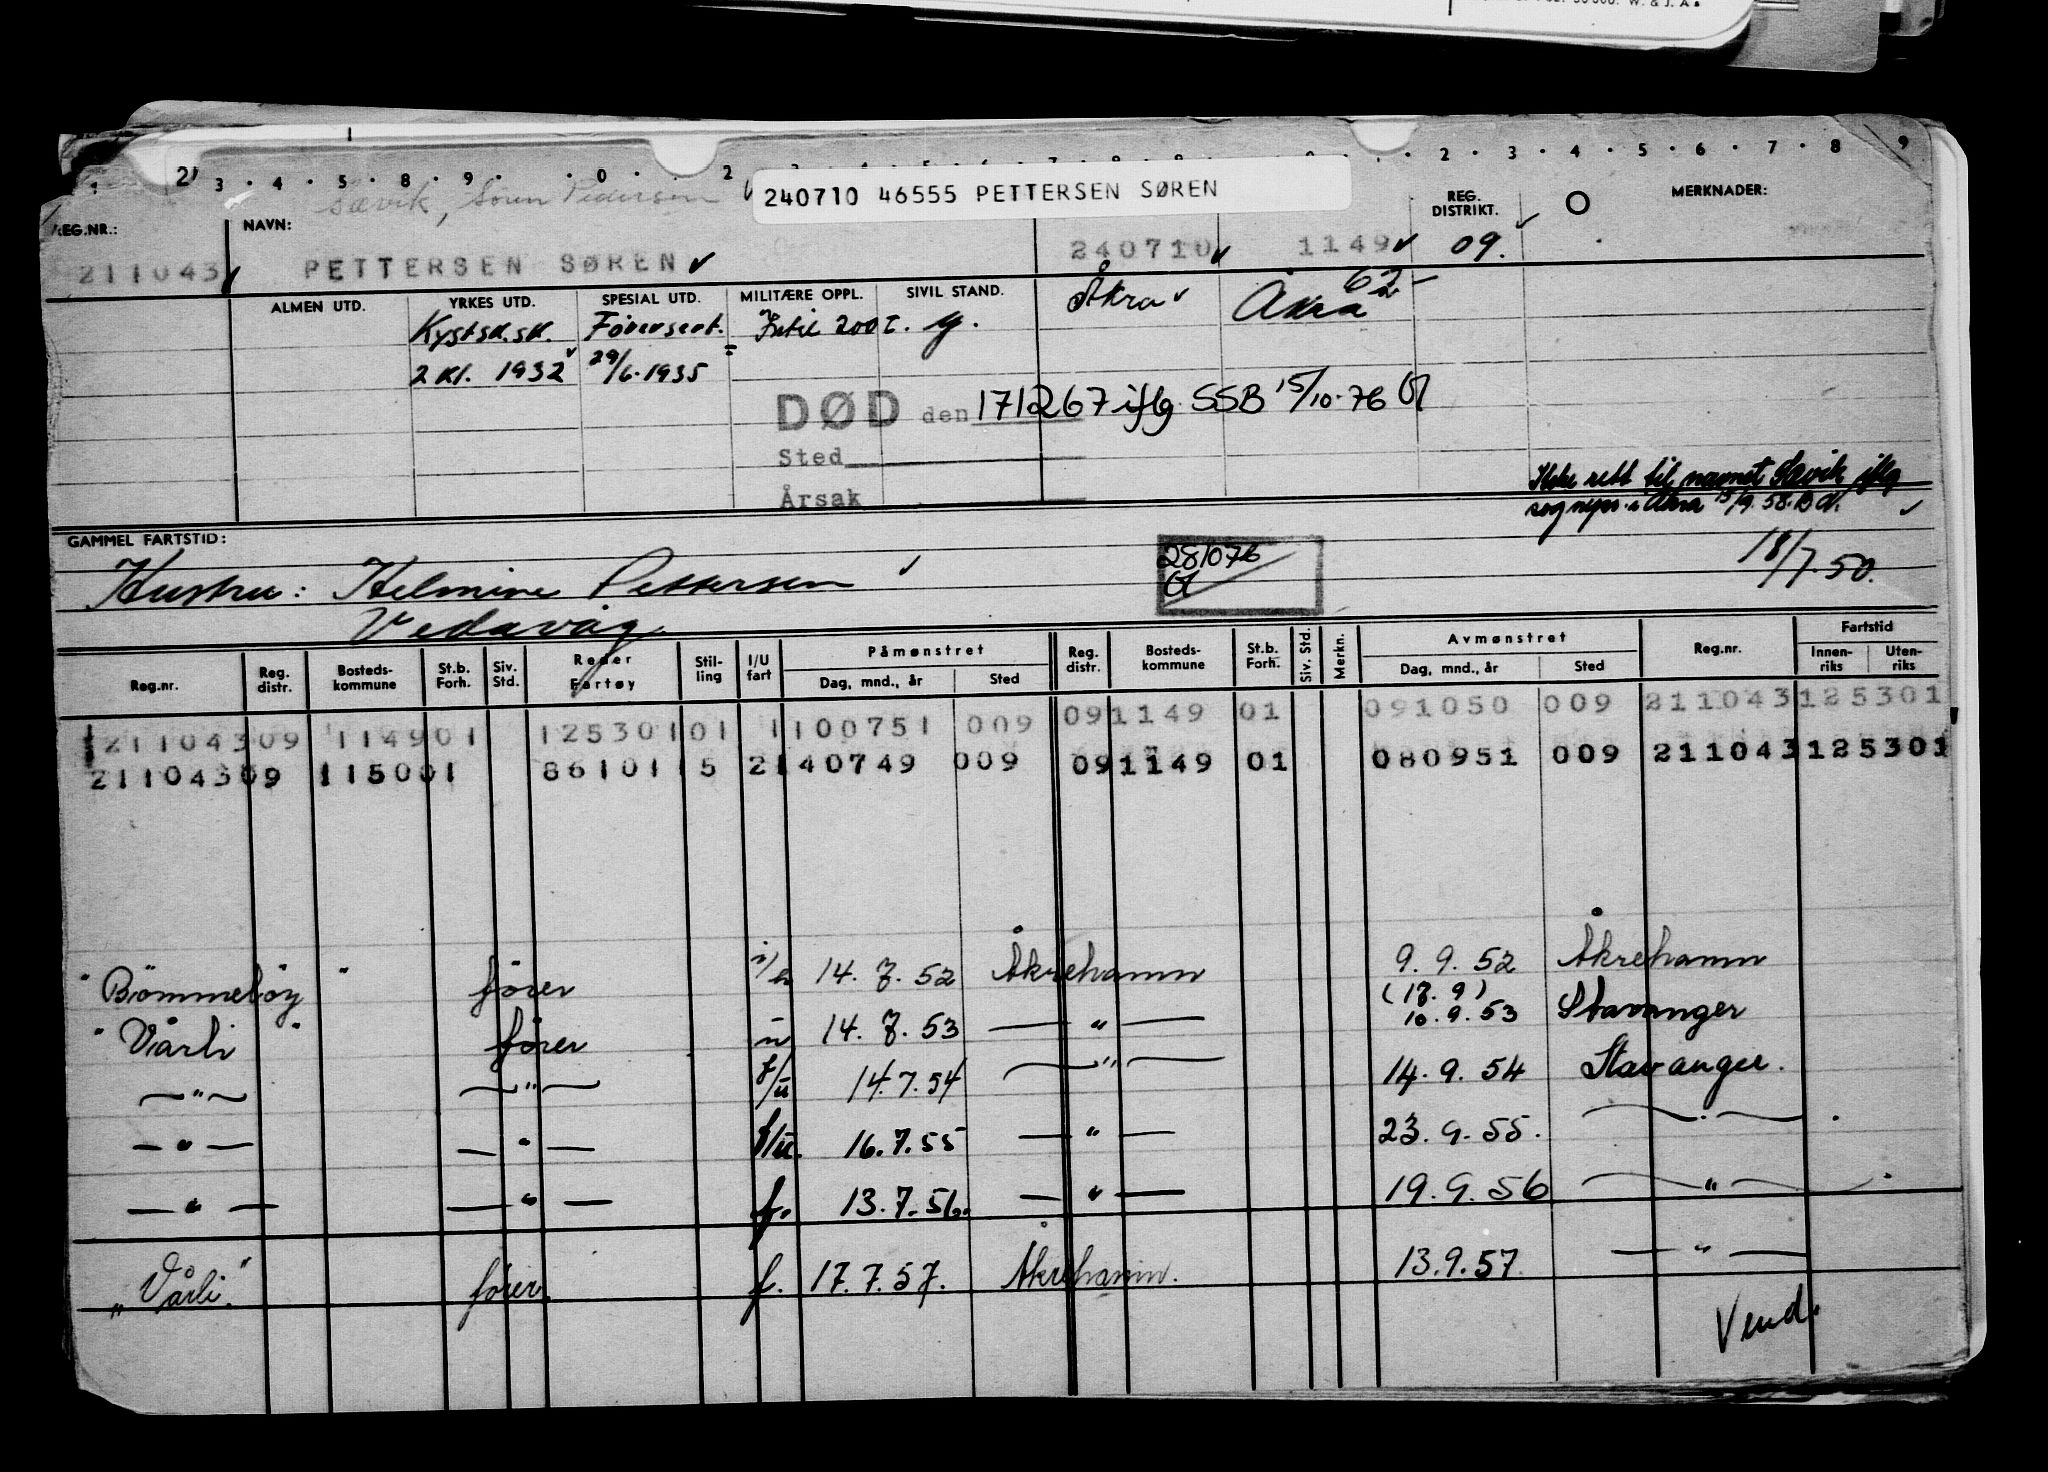 W. & J. A.
1 2 3 · 4 · 5 · 8 · 9 · · 0 · · 2 · 2 · 3 · 4 · 5 · 6 · 7 · 8 9
Sævik, Søren Pedersen
240710 46555 PETTERSEN SØREN
REG.NR.: NAVN: REG. DISTRIKT. O MERKNADER:
211043 PETTERSEN SØREN 240710 1149 09.
ALMEN UTD. YRKES UTD. SPESIAL UTD. MILITÆRE OPPL. SIVIL STAND. Åkra Åkra 62
Kystsk.sk. Førersert. Intil 200 t. g.
2 kl. 1932 29/6.1935
DØD den 171267 iflg. SSB 15/10-76
Sted
Årsak
Ikke rett til navnet Sævik iflg
sognepr. i Åkra 15/9.58. Bd.
GAMMEL FARTSTID:
Hustru: Helmine Pettersen
Vedavåg
281076
18/7.50.
Reg.nr. Reg. distr. Bosteds- kommune St.b. Forh. Siv. Std. Reder Fartøy Stil- ling I/U fart Påmønstret Dag, mnd., år Sted Reg. distr. Bosteds- kommune St.b. Forh. Siv. Std. Merkn. Avmønstret Dag, mnd., år Sted Reg.nr. Fartstid Innen- riks Uten- riks
21104309 114901 12530101 1100751 009 091149 01 091050 009 211043125301
21104309 115001 8610115 2140749 009 091149 01 080951 009 211043125301
"Bömmeløy" fører i/u 14.7.52 Åkrehamn 9.9.52 Åkrehamn
"Vårli" fører u 14.7.53 — " — (17.9) 10.9.53 Stavanger
— " — — " — f/u 14.7.54 — " — 14.9.54 Stavanger.
— " — — " — f/u. 16.7.55 — " — 23.9.55. — " — .
— " — — " — f. 13.7.56. — " — 19.9.56 — " — .
"Vårli." fører. f. 17.7.57. Åkrehamn. 13.9.57. — " —
Vend.